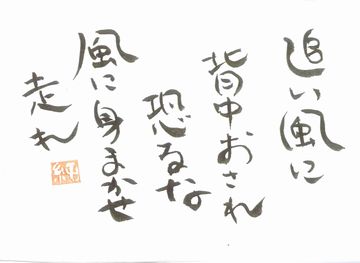 追い風に
背中おされ
恐るな
風に身まかせ
走れ